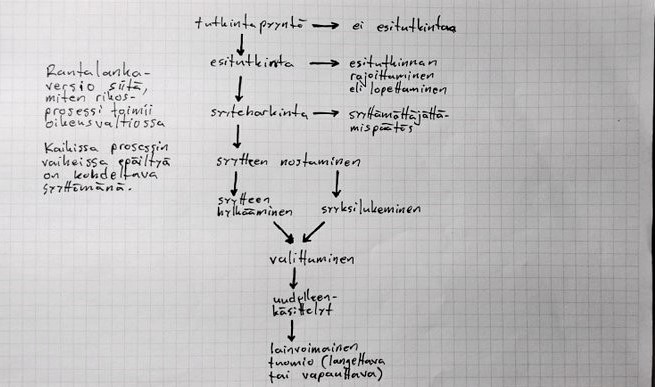 tutkintapyyntö → ei esitutkintaa
esitutkinta → esitutkinnan
rajoittuminen
eli lopettuminen
syyteharkinta → syyttämättäjättä-
mispäätös
syytteen nostaminen
syytteen
hylkääminen
syyksilukeminen
valittuminen
uudelleen-
käsittelyt
lainvoimainen
tuomio (langettava
tai vapauttava)
Rantalanka-
versio siitä,
miten rikos-
prosessi toimii
oikeusvaltiossa
Kaikissa prosessin
vaiheissa epäiltyä
on kohdeltava
syyttömänä.